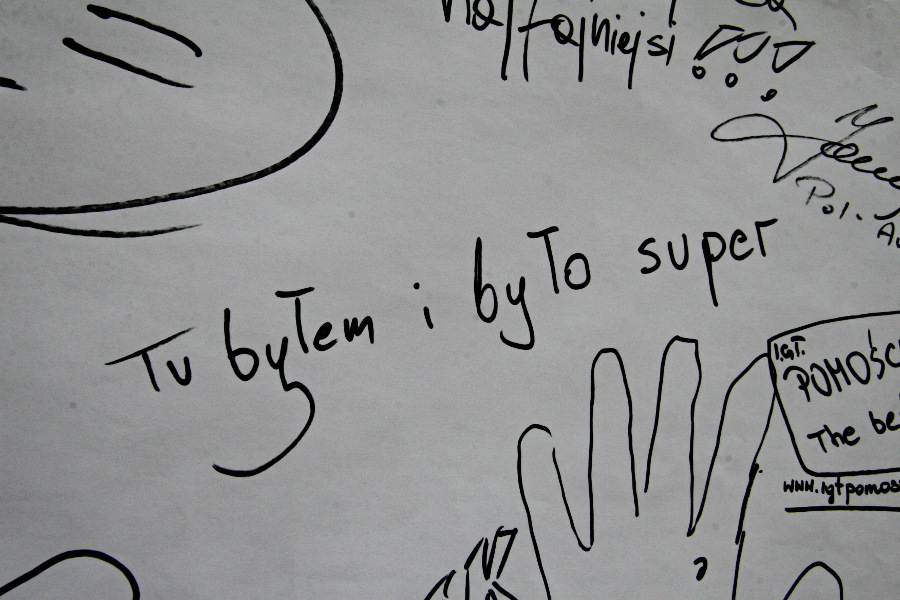 najfajniejsi !!!
Pol.
Tu byłem i było super
I.G.T.
POMOŚC
The be
www.igtpomos